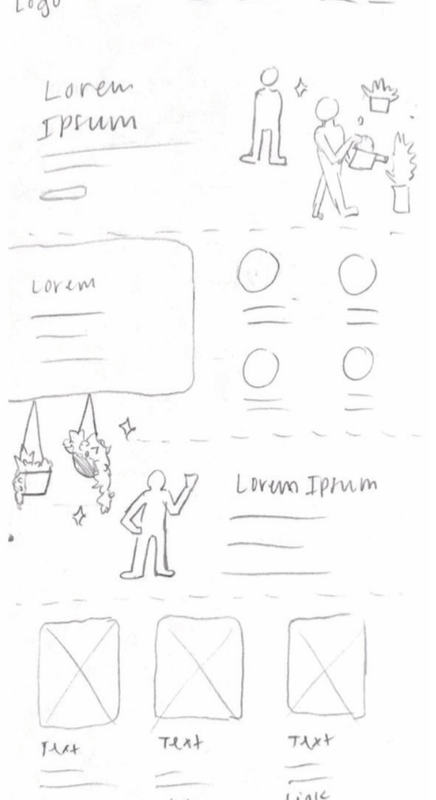 Logo
Lorem
Ipsum
Lorem
Lorem Ipsum
Text Text Text
Link